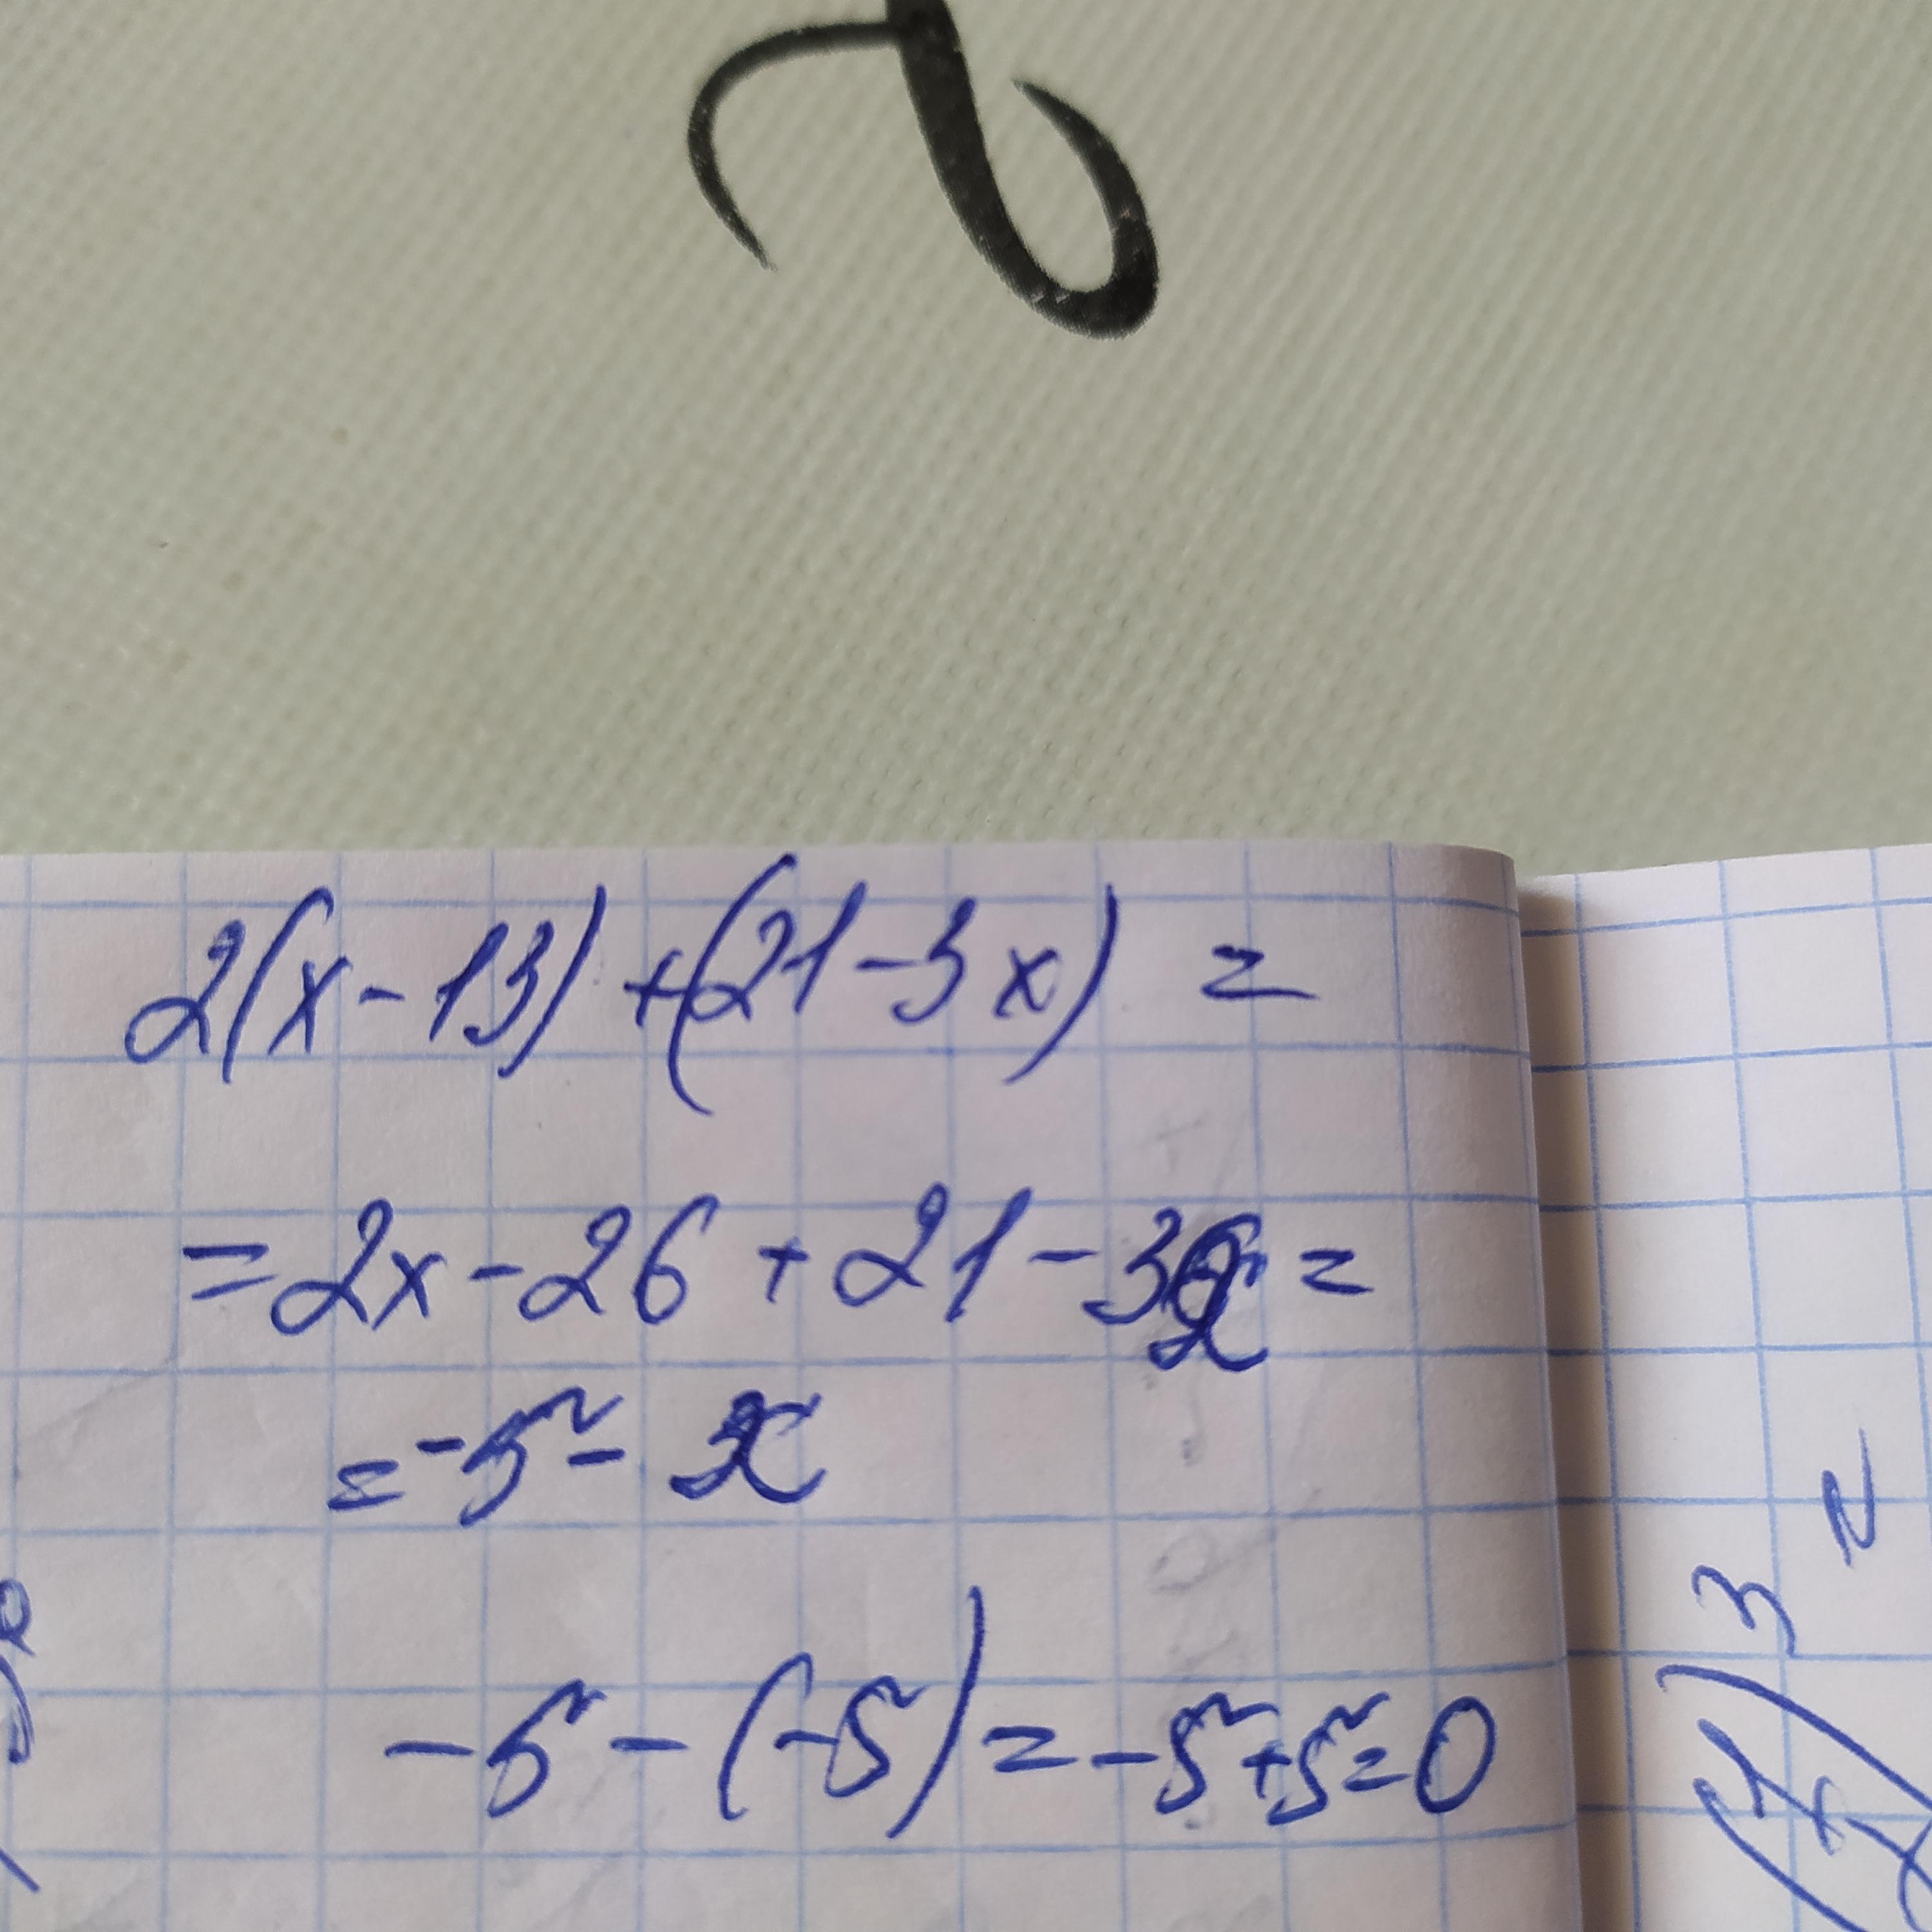 2(x-13)+(21-3x) =
=2x-26+21-3x=
=-5-x
-5-(-5)=-5+5=0